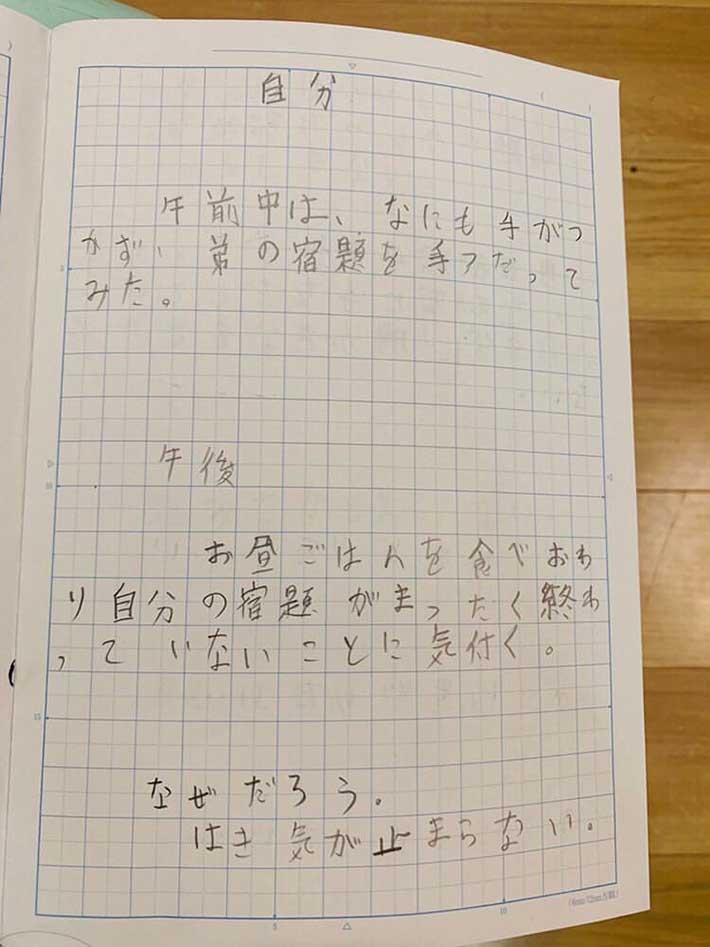 自分
午前中は、なにも手がつ
かず、弟の宿題を手つだって
みた。
午後
お昼ごはんを食べおわ
り自分の宿題がまったく終わ
っていないことに気付く。
なぜだろう。
はき気が止まらない。
5
10
15
5
10